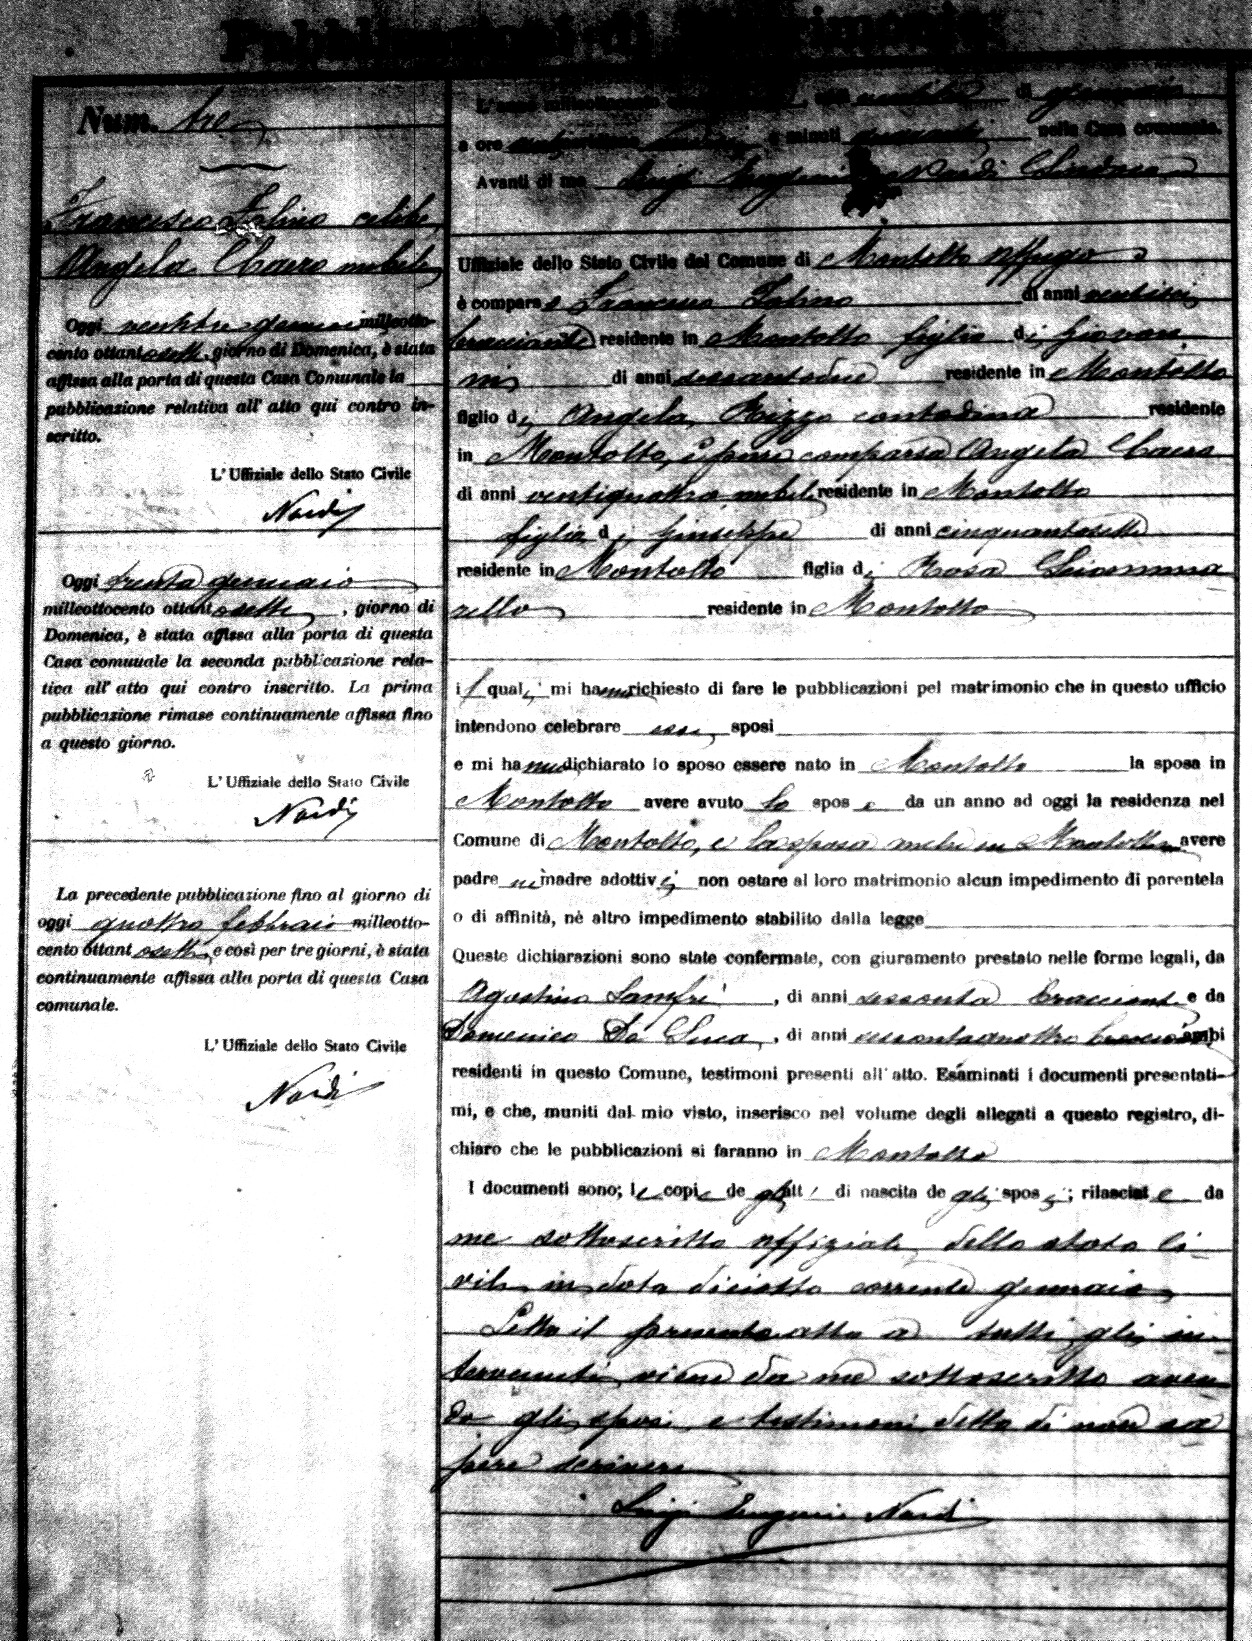 Pubblicazioni di Matrimonio
Num. tre
Francesco Folino celibe
Angela Chaero nubile
Oggi ventitre gennaio milleotto-
cento ottantasette, giorno di Domenica, è stata
affissa alla porta di questa Casa Comunale la
pubblicazione relativa all' atto qui contro in-
scritto.
L' Uffiziale dello Stato Civile
Nardi
Oggi trenta gennaio
milleottocento ottantasette, giorno di
Domenica, è stata affissa alla porta di questa
Casa comunale la seconda pubblicazione rela-
tiva all' atto qui contro inscritto. La prima
pubblicazione rimase continuamente affissa fino
a questo giorno.
L' Uffiziale dello Stato Civile
Nardi
La precedente pubblicazione fino al giorno di
oggi quattro febbraio milleotto-
cento ottantasette, e così per tre giorni, è stata
continuamente affissa alla porta di questa Casa
comunale.
L' Uffiziale dello Stato Civile
Nardi
L'anno milleottocento di gennaio
a ore minuti nella Casa comunale.
Avanti di me Luigi Eugenio Nardi Sindaco
Uffiziale dello Stato Civile del Comune di Montalto Uffugo
è comparso Francesco Folino di anni ventisei
bracciante residente in Montalto figlio di Giovan
ni di anni sessantadue residente in Montalto
figlio di Angela Rizzo contadina residente
in Montalto, è pure comparsa Angela Chaero
di anni ventiquattro nubile residente in Montalto
figlia di Giuseppe di anni cinquantasette
residente in Montalto figlia di Rosa Sciamma
rella residente in Montalto
i quali mi hanno richiesto di fare le pubblicazioni pel matrimonio che in questo ufficio
intendono celebrare essi sposi
e mi hanno dichiarato lo sposo essere nato in Montalto la sposa in
Montalto avere avuto lo sposo da un anno ad oggi la residenza nel
Comune di Montalto, e la sposa in Montalto avere
padre nè madre adottivi non ostare al loro matrimonio alcun impedimento di parentela
o di affinità, nè altro impedimento stabilito dalla legge
Queste dichiarazioni sono state confermate, con giuramento prestato nelle forme legali, da
Agostino Lanfri, di anni sessanta bracciante e da
Domenico De Luca, di anni sessantaquattro ambi
residenti in questo Comune, testimoni presenti all' atto. Esaminati i documenti presentati-
mi, e che, muniti dal mio visto, inserisco nel volume degli allegati a questo registro, di-
chiaro che le pubblicazioni si faranno in Montalto
I documenti sono; le copie de gli atti di nascita de gli sposi; rilasciate da
me sottoscritto uffiziale dello stato ci
vile in data diciotto corrente gennaio
Letto il presente atto a tutti gli in
tervenuti viene da me sottoscritto aven
do gli sposi e testimoni detto di non sa
pere scrivere
Luigi Eugenio Nardi